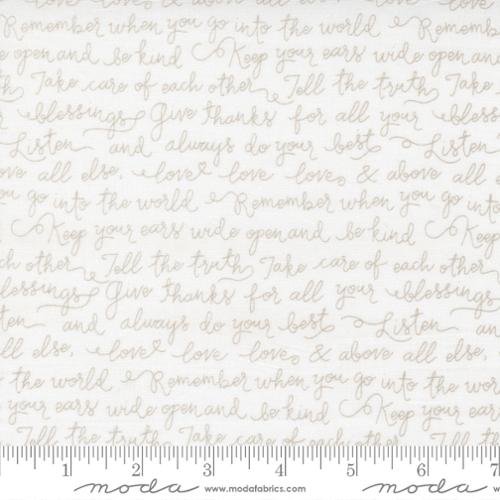 love love, & above all else, love love
Remember when you go into the world Remember
e open and be kind Keep your ears wide open and
th Take care of each other Tell the truth Take
r blessings Give thanks for all your blessi
Listen and always do your best Listen
ove all else, love love love, & above all
ou go into the world Remember when you go into
Keep your ears wide open and be kind Keep
ch other Tell the truth Take care of each other
lessings Give thanks for all your blessings
ten and always do your best Listen
ll else, love love love, & above all else,
to the world Remember when you go into the wor
your ears wide open and be kind Keep your ears
Tell the truth Take care of each other Tell th
1 2 3 4 5 6 7
moda www.modafabrics.com moda www.modafabrics.com